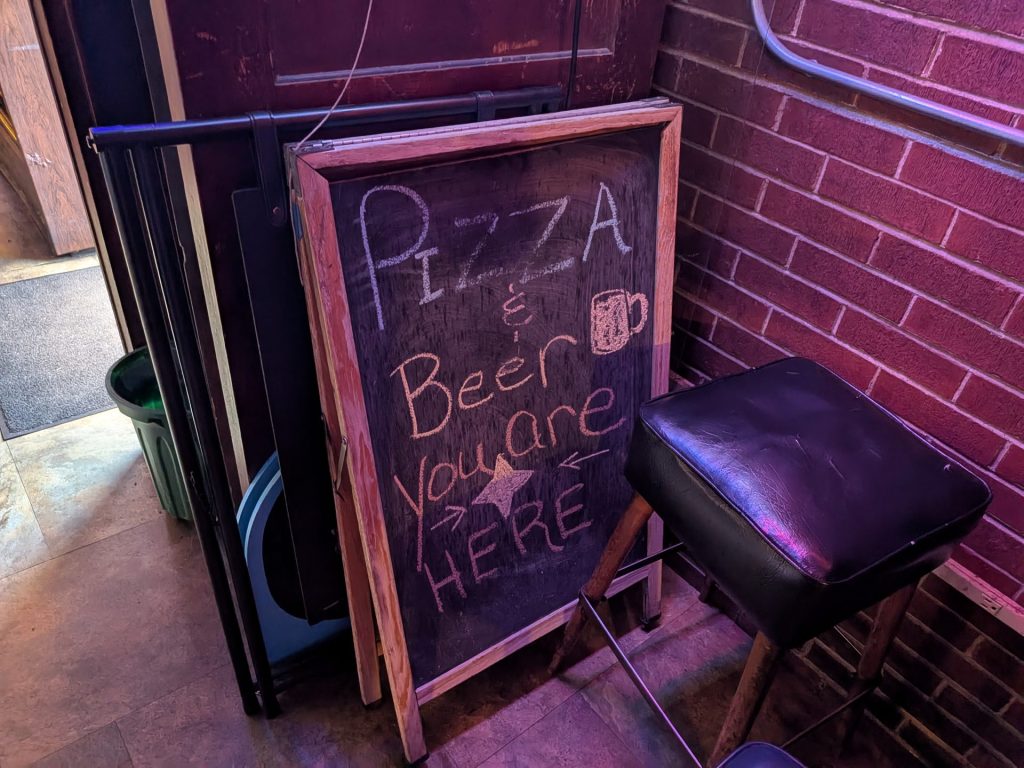 PIZZA
&
Beer
You are
HERE